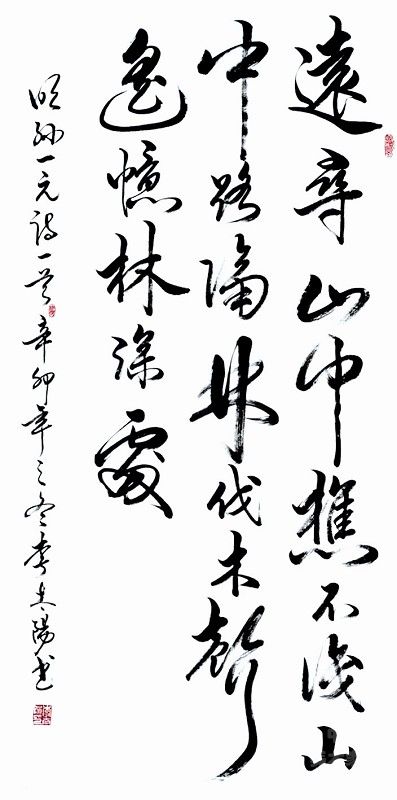 遠尋山中樵不識山
中路隔林伐木聲
遙憶林深處
明孫一元詩一首辛卯年之冬李陽書